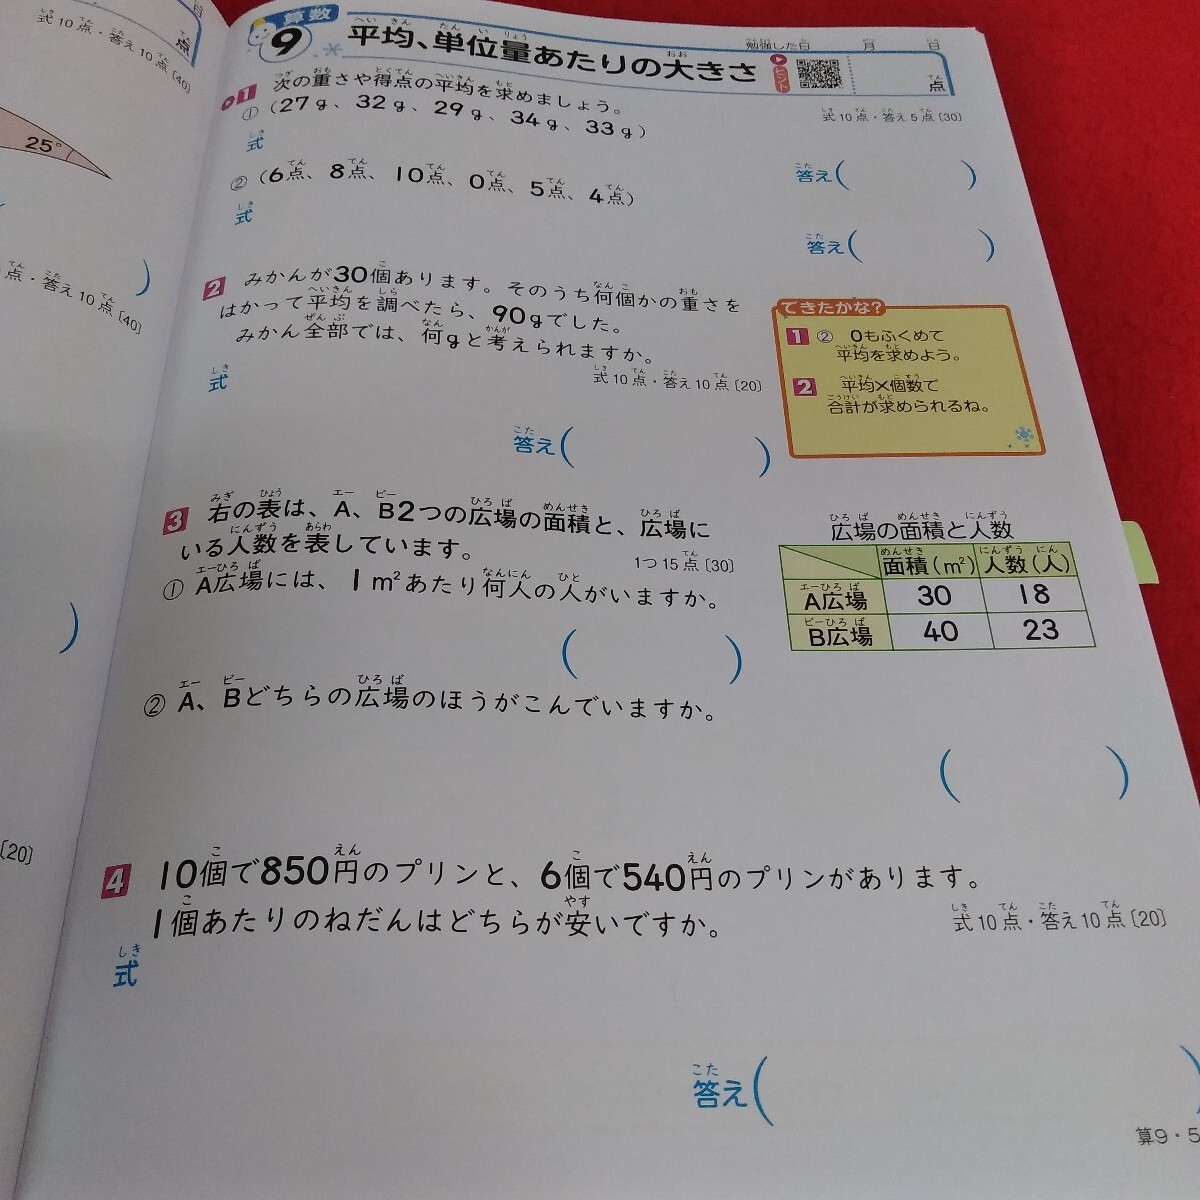 点
式10点・答え10点〔40〕
25°
点・答え10点〔40〕
〔20〕
算数
9
平均、単位量あたりの大きさ
勉強した日 月 日
ヒント
点
1 次の重さや得点の平均を求めましょう。
式10点・答え5点〔30〕
① (27g、32g、29g、34g、33g)
式
答え( )
② (6点、8点、10点、0点、5点、4点)
式
答え( )
2 みかんが30個あります。そのうち何個かの重さを
はかって平均を調べたら、90gでした。
みかん全部では、何gと考えられますか。
式10点・答え10点〔20〕
式
答え( )
できたかな?
1 ② 0もふくめて
平均を求めよう。
2 平均×個数で
合計が求められるね。
3 右の表は、A、B2つの広場の面積と、広場に
いる人数を表しています。
1つ15点〔30〕
① A広場には、1m²あたり何人の人がいますか。
( )
② A、Bどちらの広場のほうがこんでいますか。
( )
広場の面積と人数
面積(m²) 人数(人)
A広場 30 18
B広場 40 23
4 10個で850円のプリンと、6個で540円のプリンがあります。
1個あたりのねだんはどちらが安いですか。
式10点・答え10点〔20〕
式
答え( )
算9・5